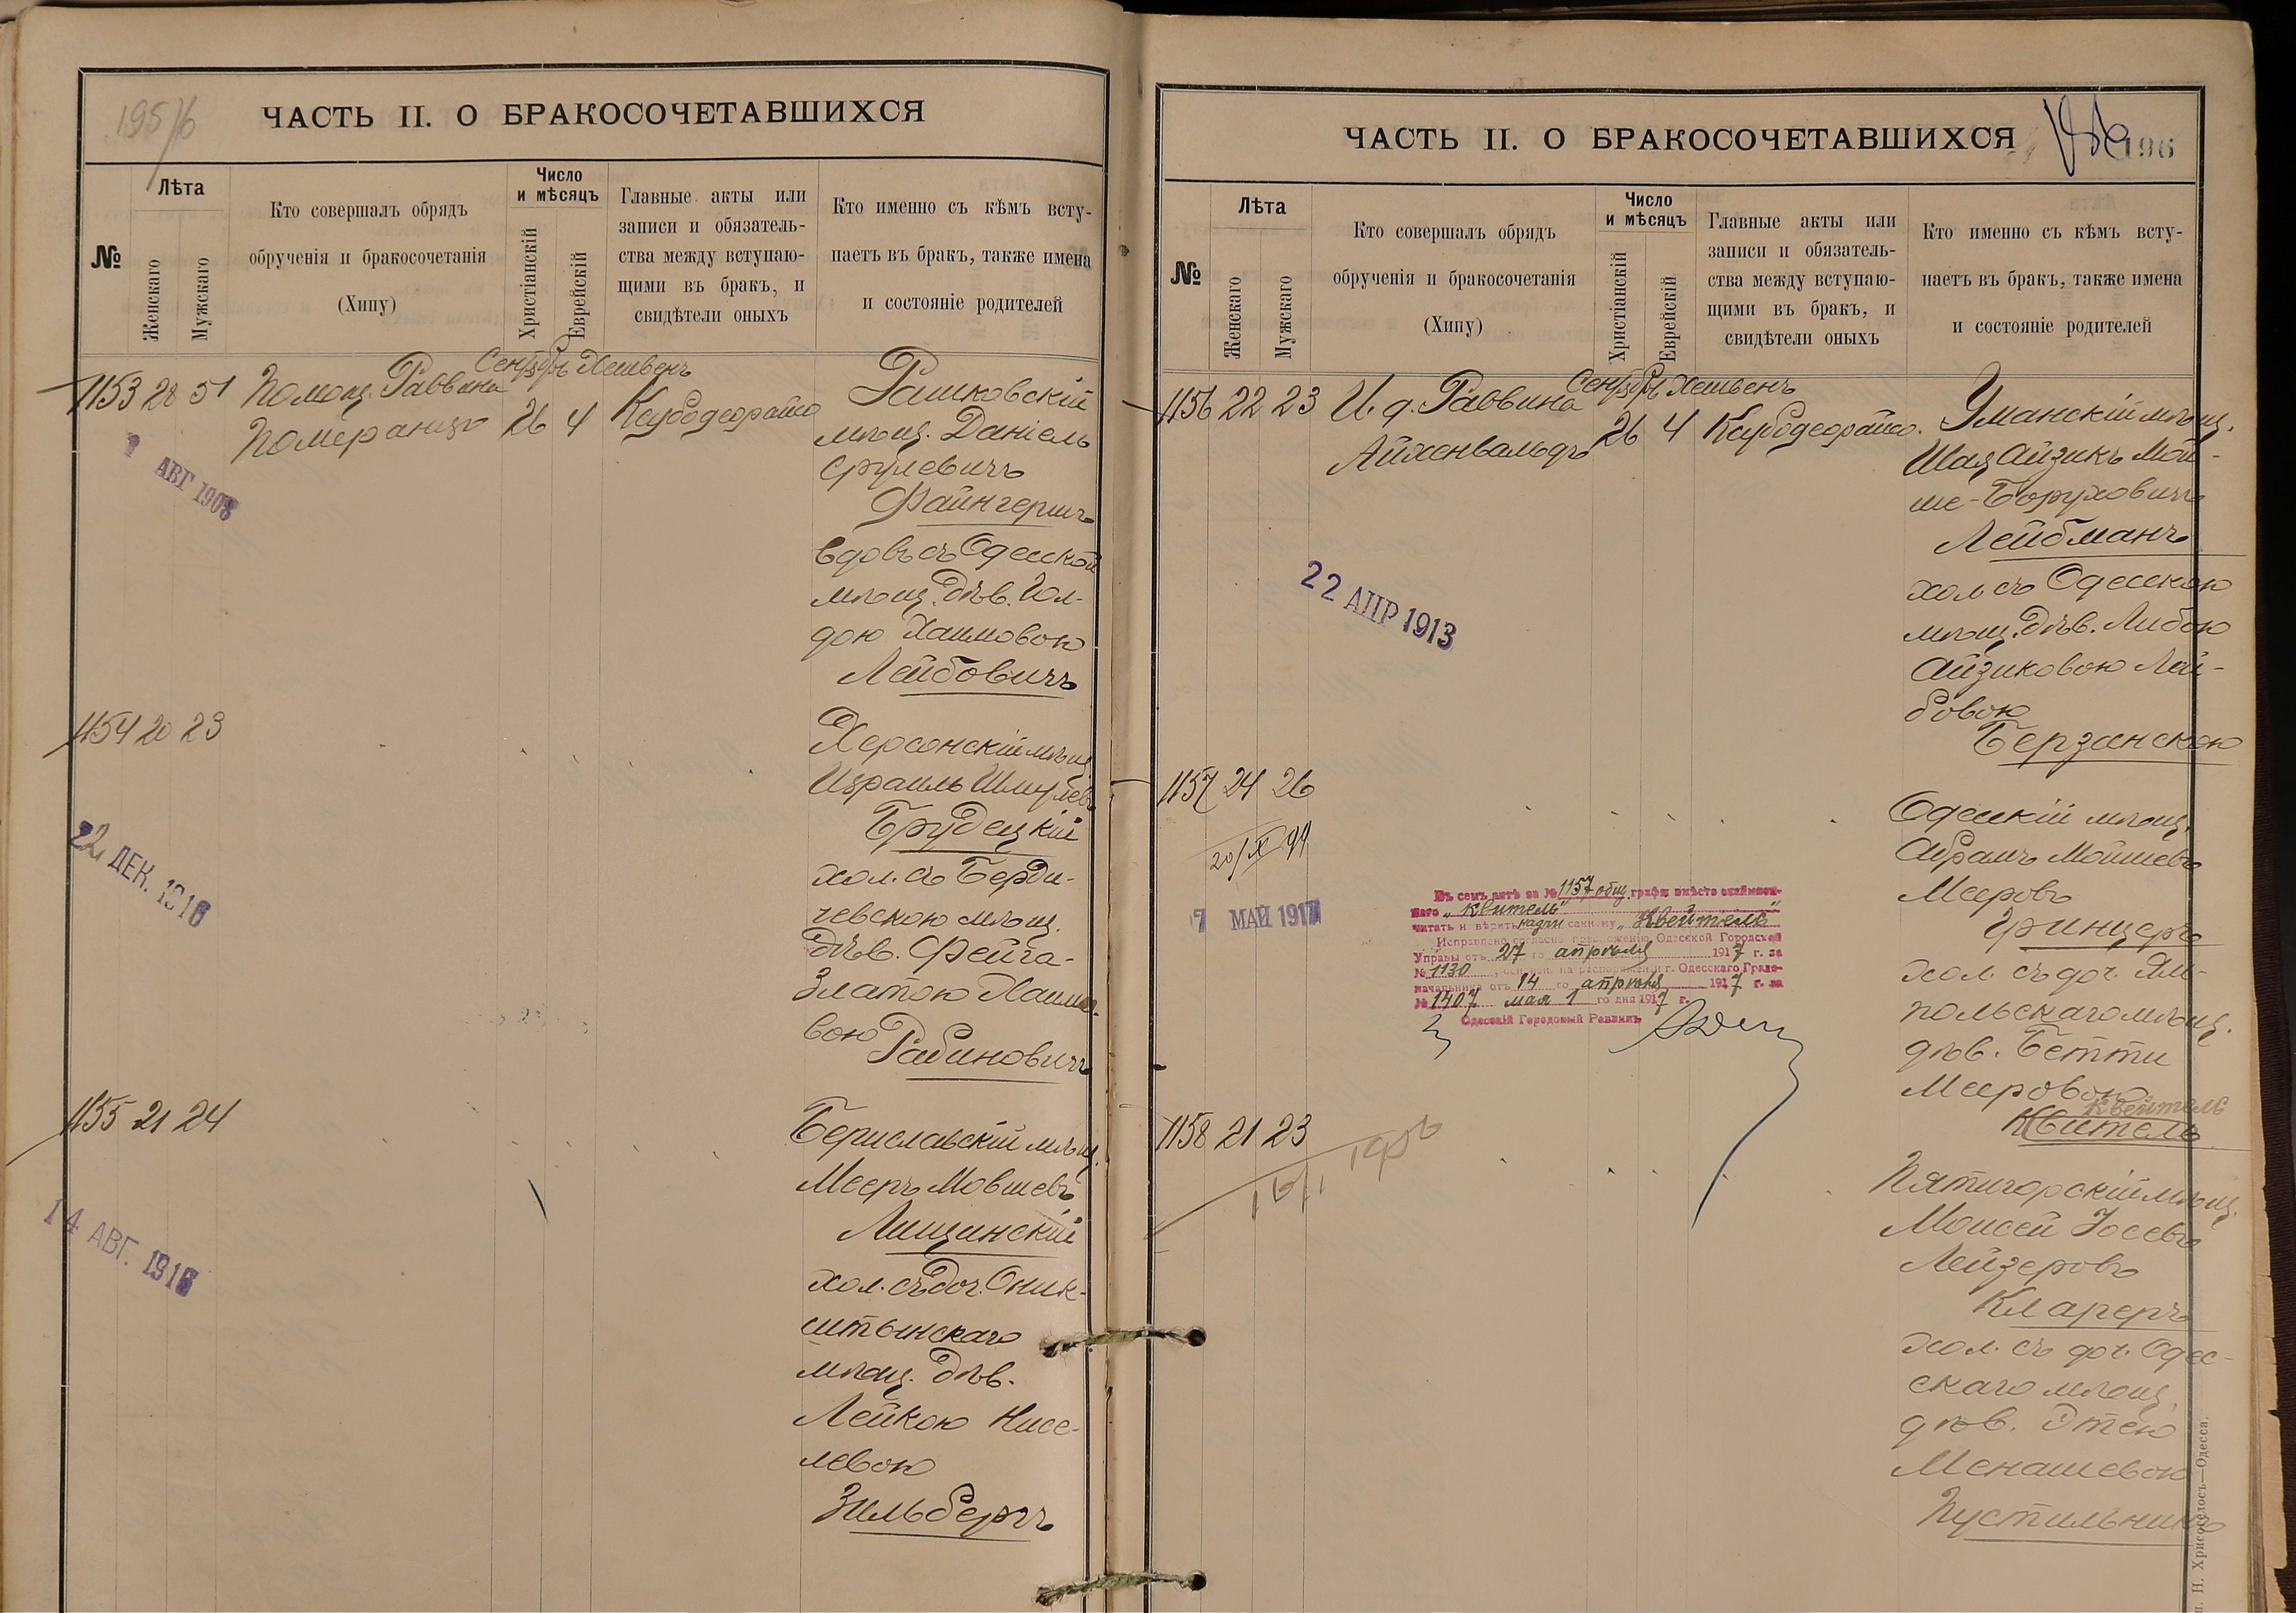 195/6
ЧАСТЬ II. О БРАКОСОЧЕТАВШИХСЯ
№
Лѣта
Женскаго
Мужскаго
Кто совершалъ обрядъ
обрученія и бракосочетанія
(Хипу)
Число
и мѣсяцъ
Христіанскій
Еврейскій
Главные акты или
записи и обязатель-
ства между вступаю-
щими въ бракъ, и
свидѣтели оныхъ
Кто именно съ кѣмъ всту-
паетъ въ бракъ, также имена
и состояніе родителей
Сентябрь Хешвенъ
1153 28 51 Помощ. Раввина
Померанцъ 26 4
Рашковскій
мѣщ. Даніель
Срулевичъ
Файнгершъ
вдовъ съ Одесской
мѣщ. дѣв. Гол-
дою Хаимовою
Лейбовичъ
АВГ 1908
1154 20 23
Херсонскій мѣщ.
Израиль Шмулевъ
Брудецкій
хол. съ Берди-
чевскою мѣщ.
дѣв. Фейга-
Златою Хаимо-
вою
Рабиновичъ
22 ДЕК. 1916
1155 21 24
Бериславскій мѣщ.
Мееръ Мовшевъ
Лищинскій
хол. съ доч. Оник-
штынскаго
мѣщ. дѣв.
Лейкою Нисе-
левою
Зильбергъ
14 АВГ. 1916
ЧАСТЬ II. О БРАКОСОЧЕТАВШИХСЯ
196
№
Лѣта
Женскаго
Мужскаго
Кто совершалъ обрядъ
обрученія и бракосочетанія
(Хипу)
Число
и мѣсяцъ
Христіанскій
Еврейскій
Главные акты или
записи и обязатель-
ства между вступаю-
щими въ бракъ, и
свидѣтели оныхъ
Кто именно съ кѣмъ всту-
паетъ въ бракъ, также имена
и состояніе родителей
Сентябрь Хешвенъ
1156 22 23 И. д. Раввина
Айхенвальдъ 26 4
Уманскій мѣщ.
Шая Айзикъ Мой-
ше-Боруховичъ
Лейбманъ
хол съ Одесскою
мѣщ. дѣв. Либою
Айзиковою Лей-
бовою
Берзанскою
22 АПР 1913
1157 24 26
20/X 99
7 МАЙ 1917
Въ семъ актѣ за № 1157 общ. графы вмѣсто
"Квитель"
читать и вѣрить надписанному "Квейтель"
Исправлено согласно предложенію Одесской Городской
Управы отъ 27 го апрѣля 1917 г. за
№ 1130, основан. на распоряженіи г. Одесскаго Градо-
начальника отъ 14 го апрѣля 1917 г. за
№ 1407 мая 1 го дня 1917 г.
Одесскій Городовый Раввинъ
Одесскій мѣщ.
Абрамъ Мойшевъ
Мееровъ
Гринцеръ
хол. съ доч. Ям-
польскаго мѣщ.
дѣв. Бетти
Мееровою
Квейтель
Квитель
1158 21 23
Пятигорскій мѣщ.
Моисей Іосевъ
Лейзеровъ
Клареръ
хол. съ доч. Одес-
скаго мѣщ.
дѣв. Этею
Менашевою
Пустильникъ
Н. Хрисогелосъ—Одесса.